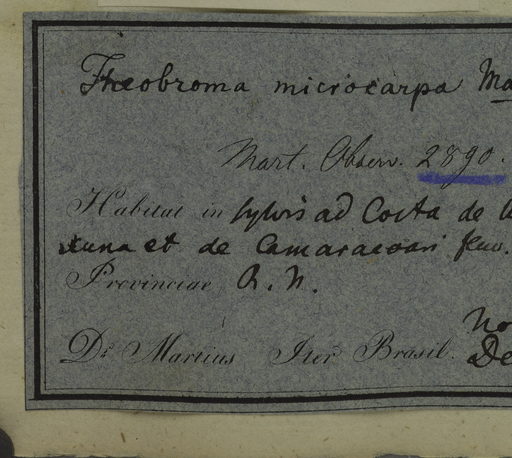 Theobroma microcarpa Ma
Mart. Observ. 2890.
Habitat in sylvis ad Costa de
et de Camaracoari fluv.
Provinciae R. N.
Dr. Martius Iter Brasil.
No
De